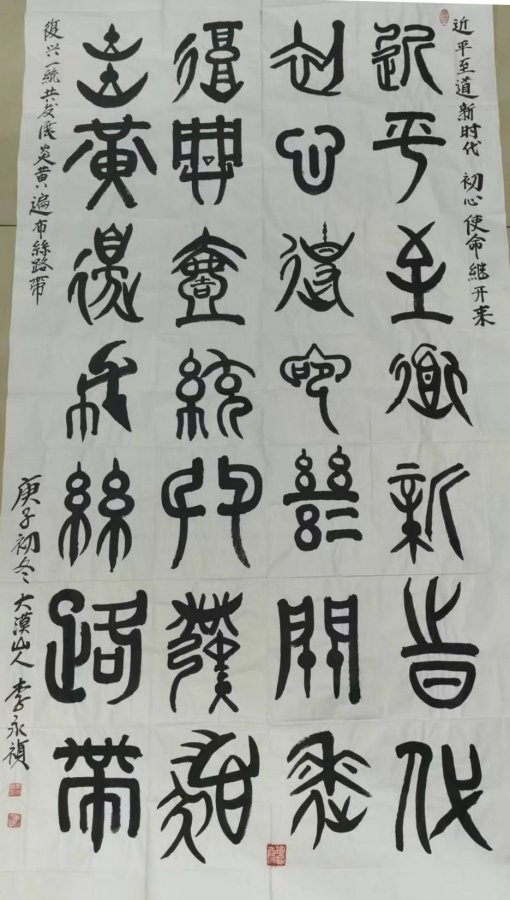 近平至道新时代 初心使命继开来
近平至道新旹代
初心使命繼開来
復興壹統共發展
炎黄遍布絲路帶
復兴一統共发展 炎黄遍布絲路带
庚子初冬 大漠山人 李永禎